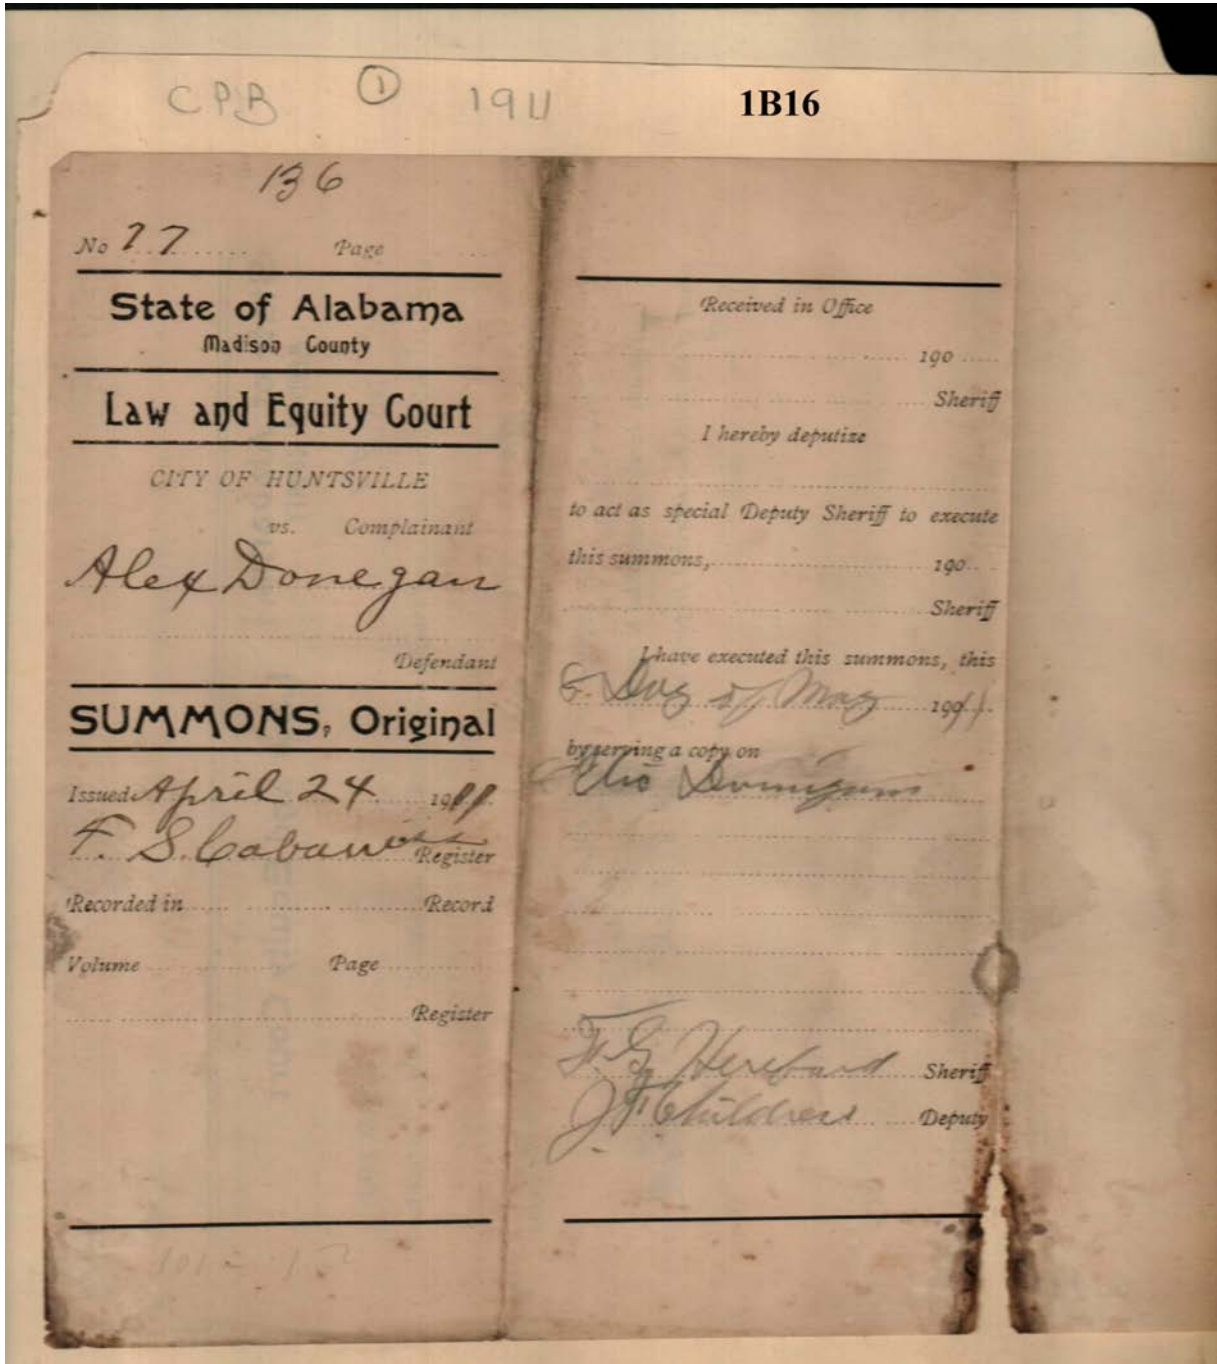 CPB ① 1911 1B16
136
No 77 Page
State of Alabama
Madison County
Law and Equity Court
CITY OF HUNTSVILLE
vs. Complainant
Alex Donegan
Defendant
SUMMONS, Original
Issued April 24 1911.
F. S. Cabaniss Register
Recorded in Record
Volume Page
Register
Received in Office
190
Sheriff
I hereby deputize
to act as special Deputy Sheriff to execute
this summons, 190
Sheriff
I have executed this summons, this
8 Day of May 1911.
by serving a copy on
Sheriff
J F Childress Deputy